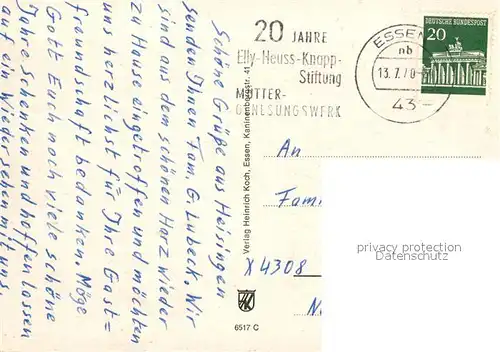 Schöne Grüße aus Heisingen
senden Ihnen Fam. G. Lubeck. Wir
sind aus dem schönen Harz wieder
zu Hause eingetroffen und möchten
uns herzlichst für Ihre Gast=
freundschaft bedanken. Möge
Gott Euch noch viele schöne
Jahre schenken und hoffen lassen
auf ein Wiedersehen mit uns.
20 JAHRE
Elly-Heuss-Knapp-
Stiftung
MÜTTER-
GENESUNGSWERK
ESSEN
nb
13.7.70
43
DEUTSCHE BUNDESPOST
20
Verlag Heinrich Koch, Essen, Kaninenbergstr. 41
An
Fam
X 4308
6517 C
privacy protection
Datenschutz